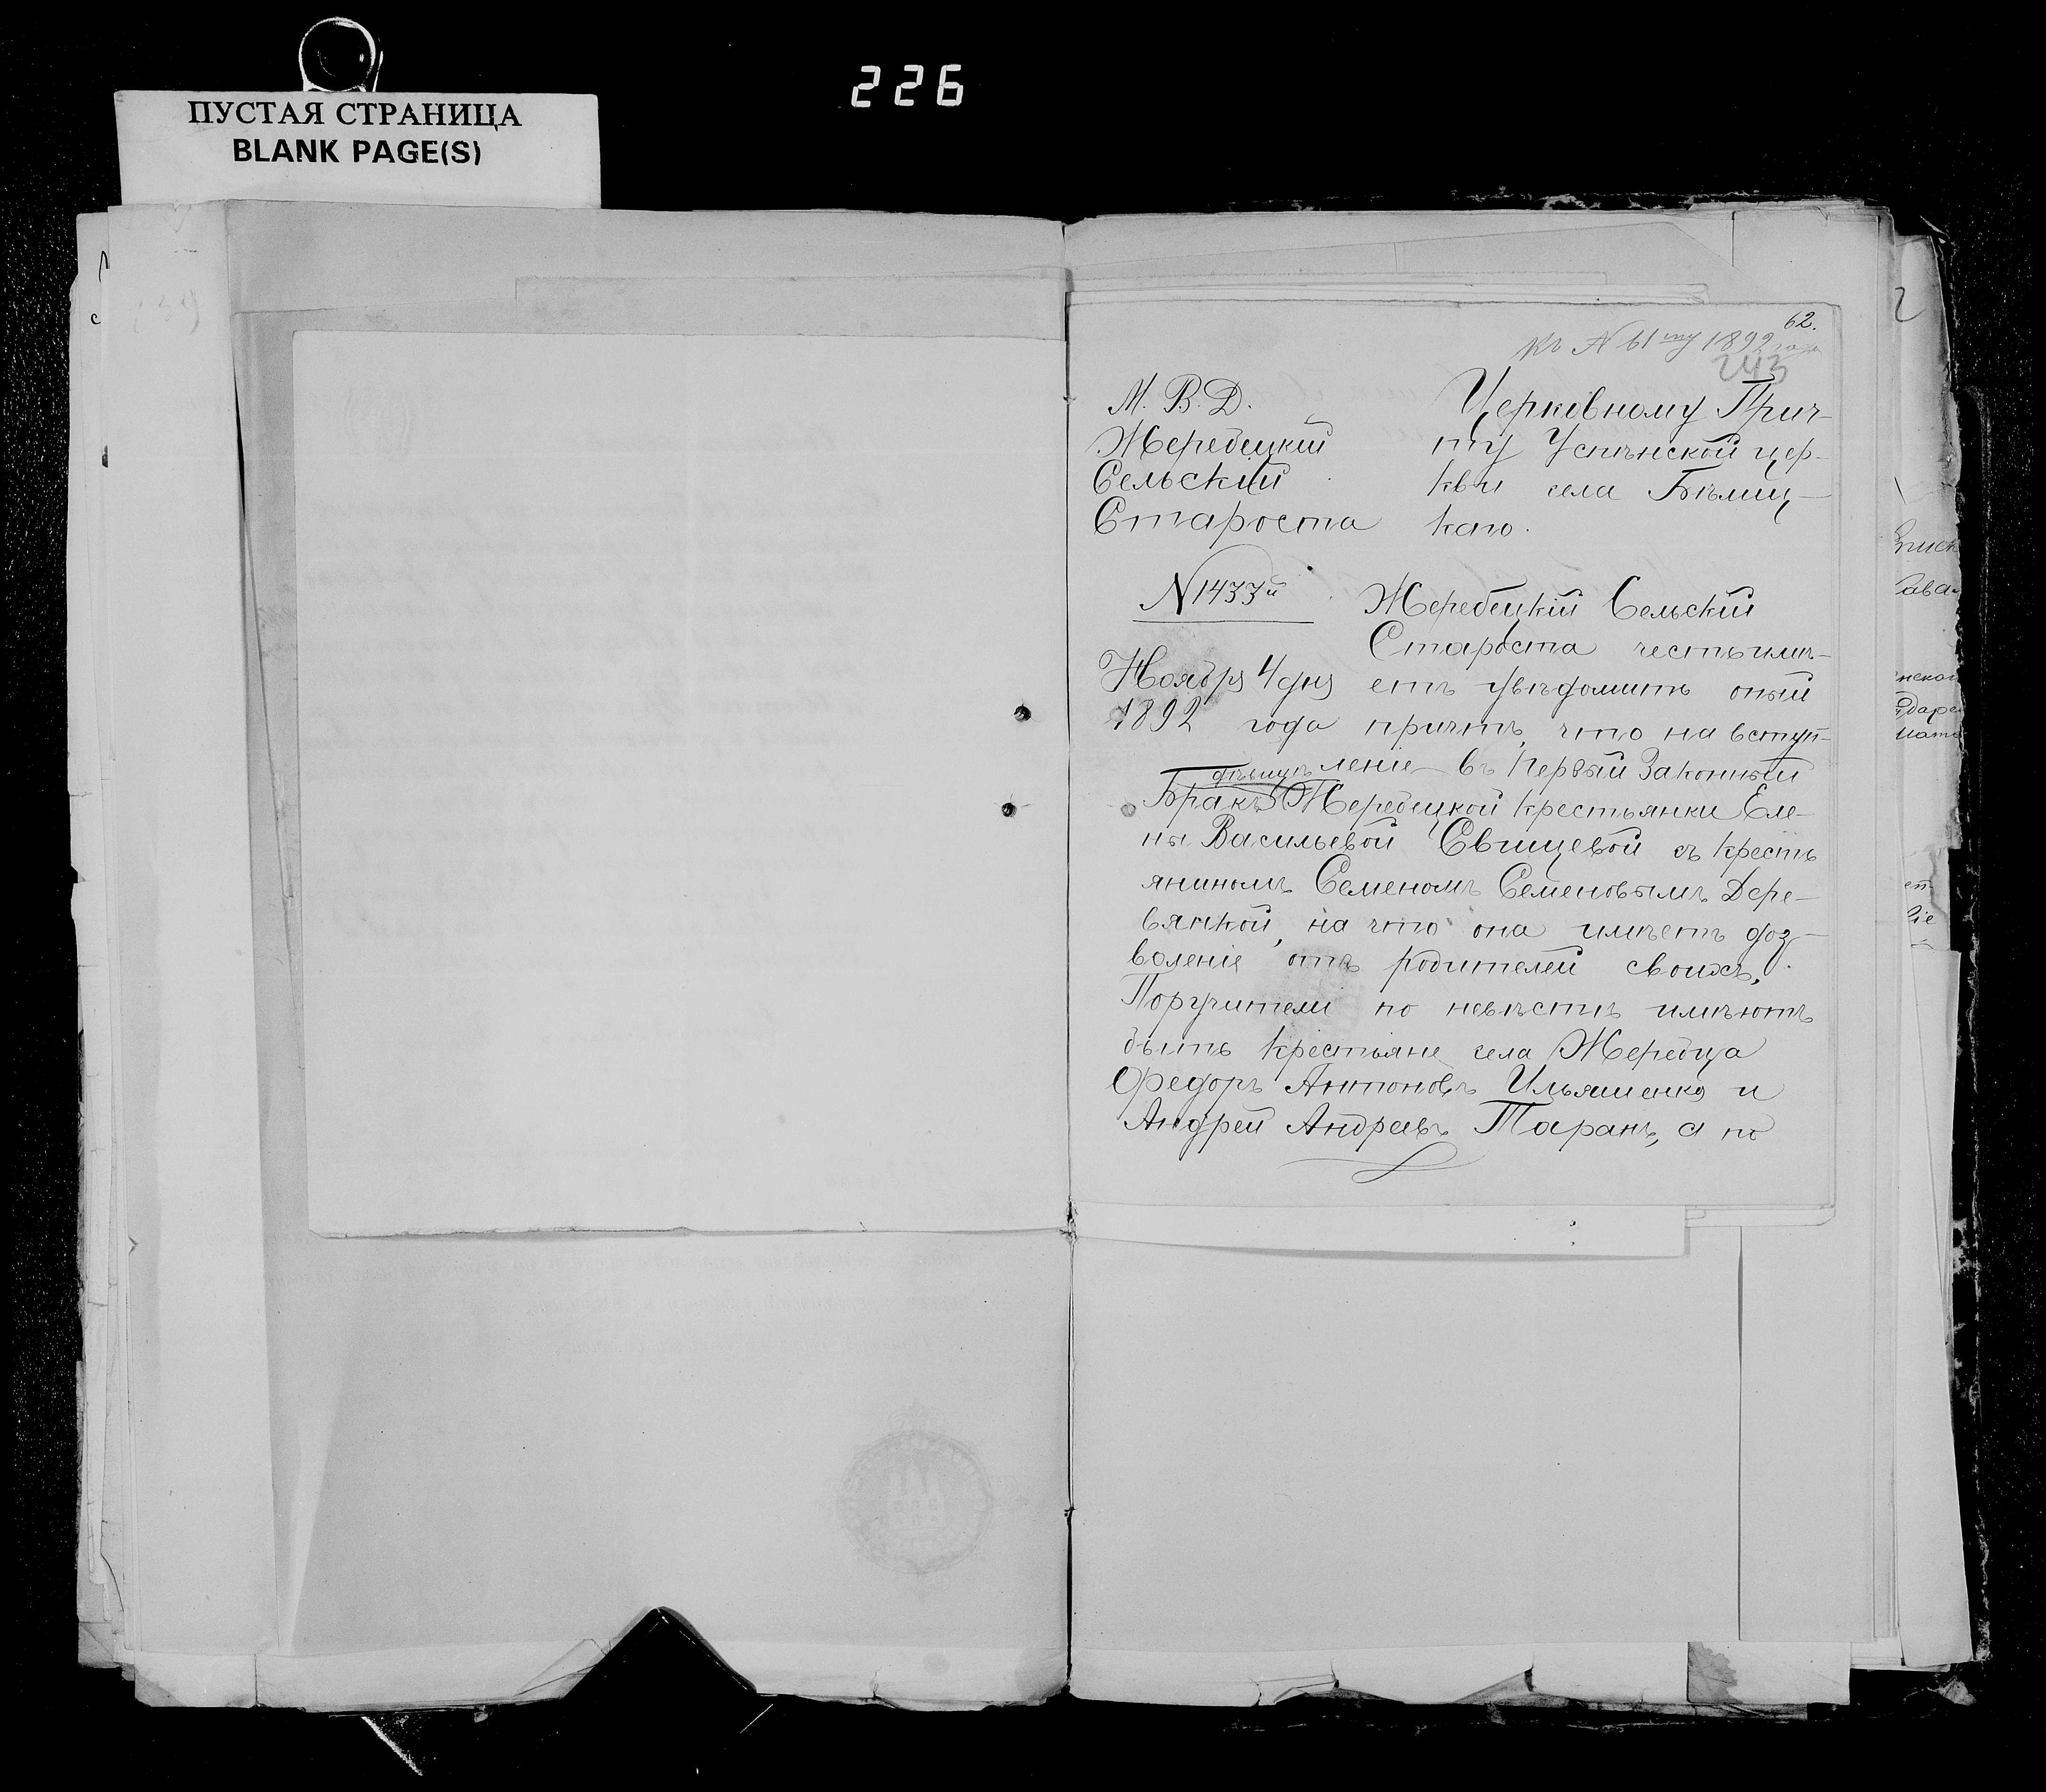 226
ПУСТАЯ СТРАНИЦА
BLANK PAGE(S)
62.
Къ № 61му 1892 года
243
М. В. Д.
Жеребецкій
Сельскій
Староста
№ 1433й
Ноября 4 дня
1892 года
Церковному Прич-
ту Успѣнской цер-
кви села Бѣлиц-
каго.
Жеребецкій Сельскій
Староста честь имѣ-
етъ увѣдомить оный
причтъ, что на вступ-
леніе въ Первый Законный
Бракъ дѣвицѣ Жеребецкой крестьянки Еле-
ны Васильевой Свищевой съ кресть
яниномъ Семеномъ Семеновымъ Дере-
вянкой, на что она имѣетъ доз-
воленіе отъ родителей своихъ.
Поручители по невѣстѣ имѣютъ
быть крестьяне села Жеребца
Федоръ Антоновъ Ильяшенко и
Андрей Андреевъ Таранъ, а по